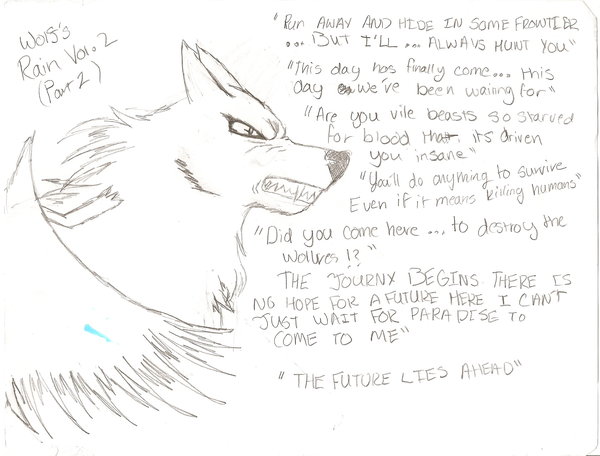 Wolf's
Rain Vol. 2
(Part 2)
"Run AWAY AND HIDE IN SOME FROWTIER
... BUT I'LL ... ALWAYS HUNT YOU"
"This day has finally come... this
day we've been waiting for"
"Are you vile beasts so starved
for blood that its driven
you insane"
"You'll do anything to survive
Even if it means killing humans"
"Did you come here ... to destroy the
Wollves!?"
THE JOURNX BEGINS. THERE IS
NO HOPE FOR A FUTURE HERE I CAN'T
JUST WAIT FOR PARADISE TO
COME TO ME"
"THE FUTURE LIES AHEAD"